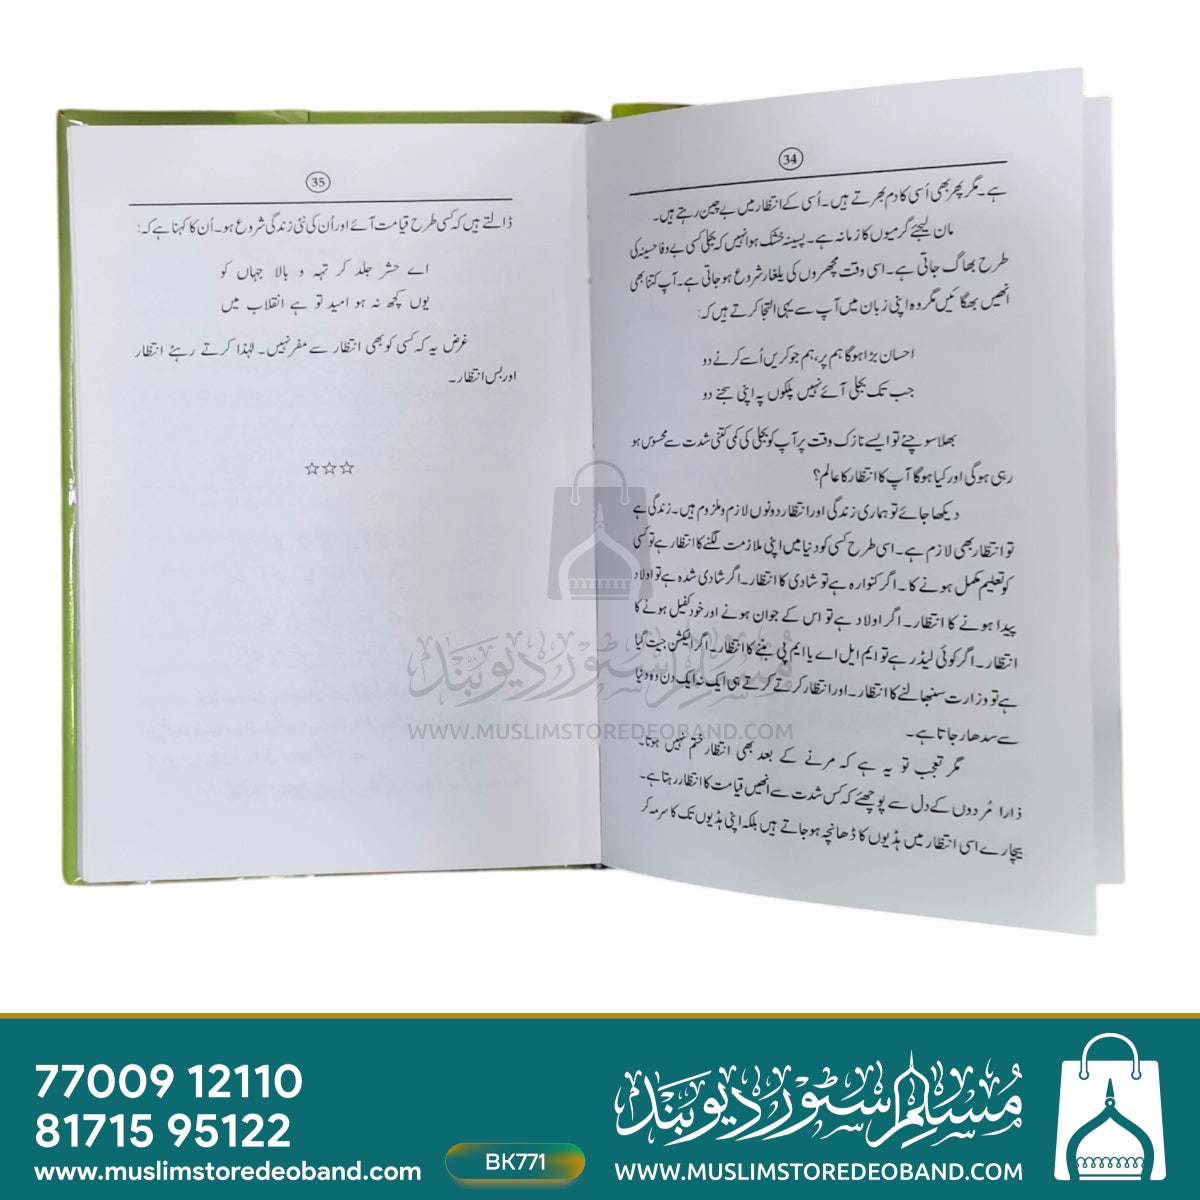 34
ہے۔ مگر پھر بھی اُسی کا دم بھرتے ہیں۔ اُسی کے انتظار میں بے چین رہتے ہیں۔
مان لیجئے گرمیوں کا زمانہ ہے۔ پسینہ خشک ہوا نہیں کہ بجلی کسی بے وفا حسینہ کی
طرح بھاگ جاتی ہے۔ اسی وقت مچھروں کی یلغار شروع ہو جاتی ہے۔ آپ کتنا بھی
انھیں بھگائیں مگر وہ اپنی زبان میں آپ سے یہی التجا کرتے ہیں کہ:
احسان بڑا ہوگا ہم پر، ہم جو کریں اُسے کرنے دو
جب تک بجلی آئے نہیں پلکوں پہ اپنی سجنے دو
بھلا سوچئے تو ایسے نازک وقت پر آپ کو بجلی کی کمی کتنی شدت سے محسوس ہو
رہی ہوگی اور کیا ہوگا آپ کا انتظار کا عالم؟
دیکھا جائے تو ہماری زندگی اور انتظار دونوں لازم و ملزوم ہیں۔ زندگی ہے
تو انتظار بھی لازم ہے۔ اسی طرح کسی کو دنیا میں اپنی ملازمت لگنے کا انتظار ہے تو کسی
کو تعلیم مکمل ہونے کا۔ اگر کنوارہ ہے تو شادی کا انتظار۔ اگر شادی شدہ ہے تو اولاد
پیدا ہونے کا انتظار۔ اگر اولاد ہے تو اس کے جوان ہونے اور خود کفیل ہونے کا
انتظار۔ اگر کوئی لیڈر ہے تو ایم ایل اے یا ایم پی بننے کا انتظار۔ اگر الیکشن جیت گیا
ہے تو وزارت سنبھالنے کا انتظار۔ اور انتظار کرتے کرتے ہی ایک نہ ایک دن وہ دنیا
سے سدھار جاتا ہے۔
مگر تعجب تو یہ ہے کہ مرنے کے بعد بھی انتظار ختم نہیں ہوتا۔
ذارا مُردوں کے دل سے پوچھئے کہ کس شدت سے انھیں قیامت کا انتظار رہتا ہے۔
بیچارے اسی انتظار میں ہڈیوں کا ڈھانچہ ہو جاتے ہیں بلکہ اپنی ہڈیوں تک کا سرمہ کر
35
ڈالتے ہیں کہ کسی طرح قیامت آئے اور اُن کی نئی زندگی شروع ہو۔ اُن کا کہنا ہے کہ:
اے حشر جلد کر تہہ و بالا جہاں کو
یوں کچھ نہ ہو امید تو ہے انقلاب میں
غرض یہ کہ کسی کو بھی انتظار سے مفر نہیں۔ لہٰذا کرتے رہئے انتظار
اور بس انتظار۔
☆☆☆
مُسلم سٹور دیوبند
WWW.MUSLIMSTOREDEOBAND.COM
77009 12110
81715 95122
www.muslimstoredeoband.com
BK771
مُسلم سٹور دیوبند
WWW.MUSLIMSTOREDEOBAND.COM